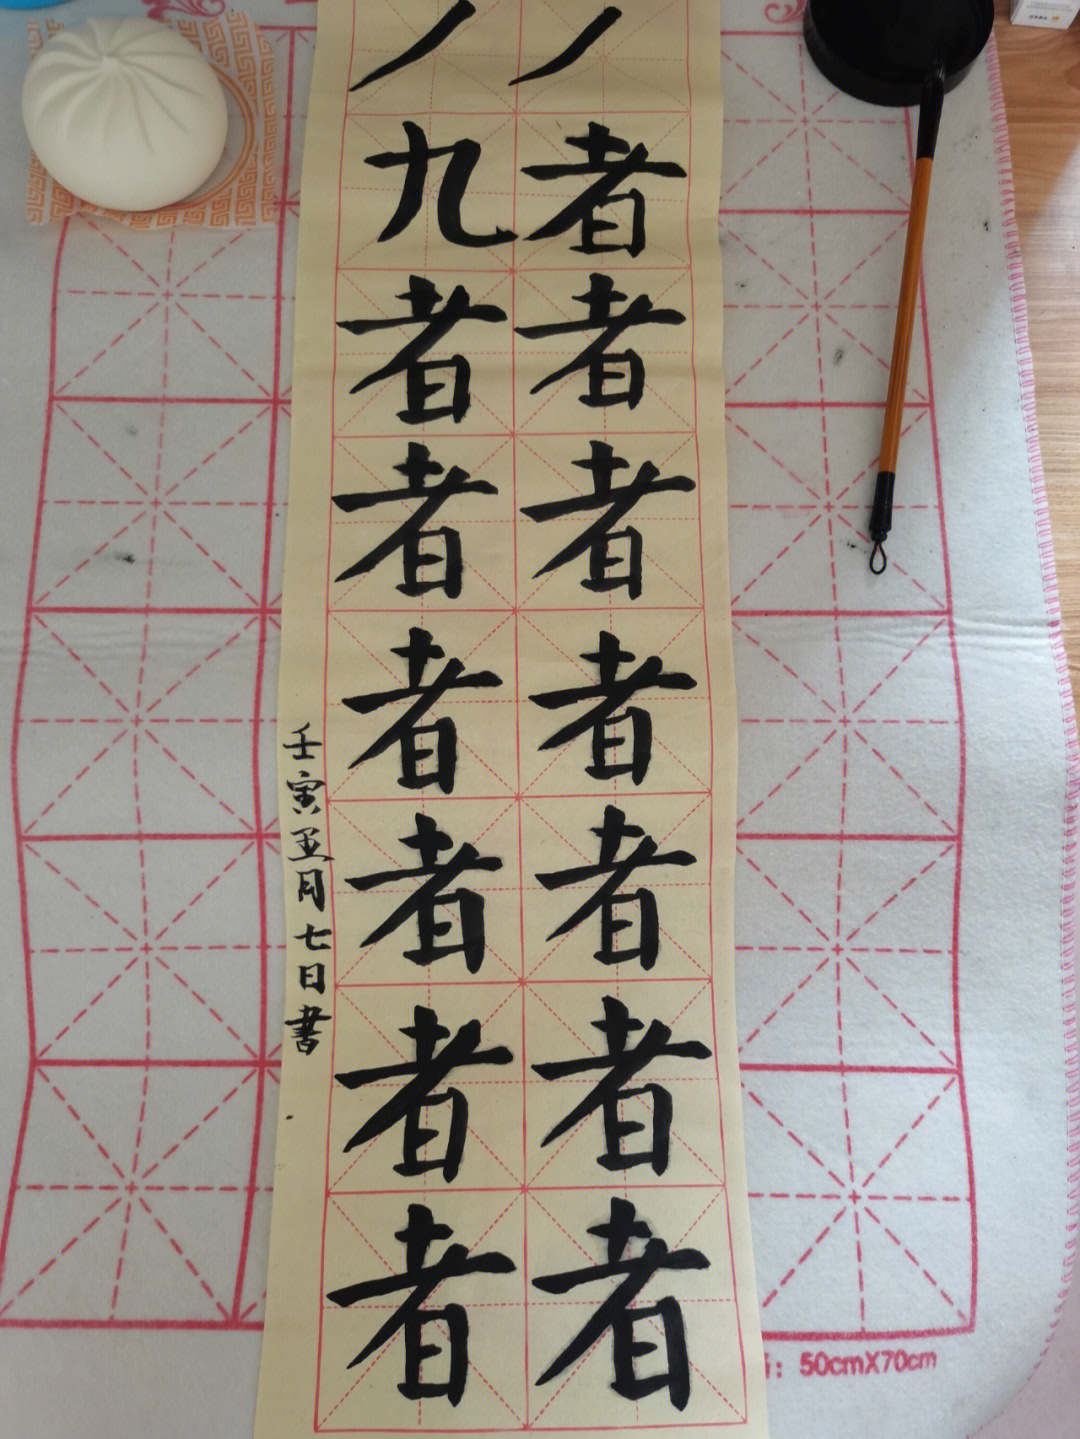 丿者者者者者者者
丿九者者者者者者
壬寅五月七日書
：50cmX70cm